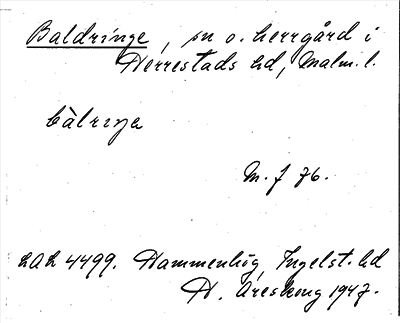 Baldringe, sn o. herrgård i
Herrestads hd, Malm. l.
bàlriŋa
M. f 76.
LAL 4499. Hammenhög, Ingelst. hd
H. Areskoug 1947.